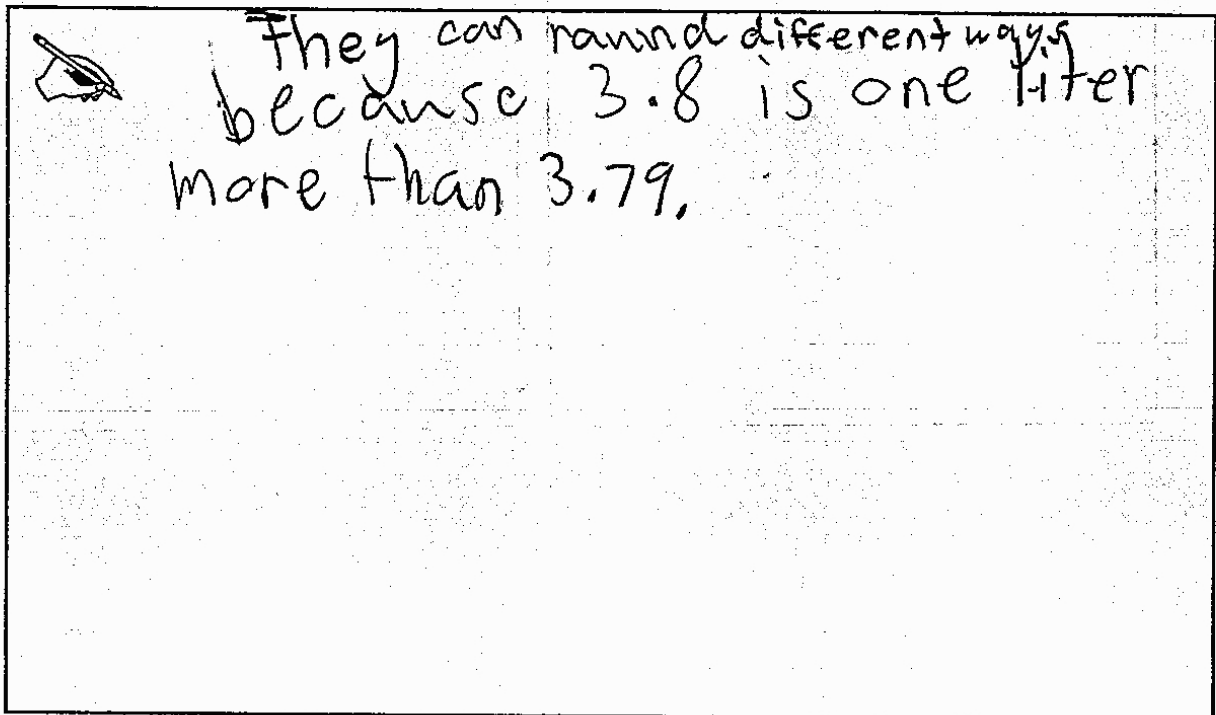 They can raunnd different ways
because 3.8 is one liter
more than 3.79.